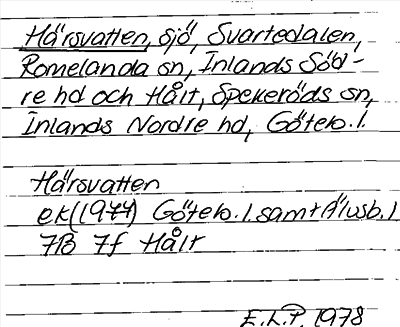 Härsvatten, sjö, Svartedalen,
Romelanda sn, Inlands Söd-
re hd och Hålt, Spekeröds sn,
Inlands Nordre hd, Göteb. l.
Härsvatten
ek (1974) Göteb. l. samt Älvsb. l
7B 7f Hålt
E.L.P. 1978